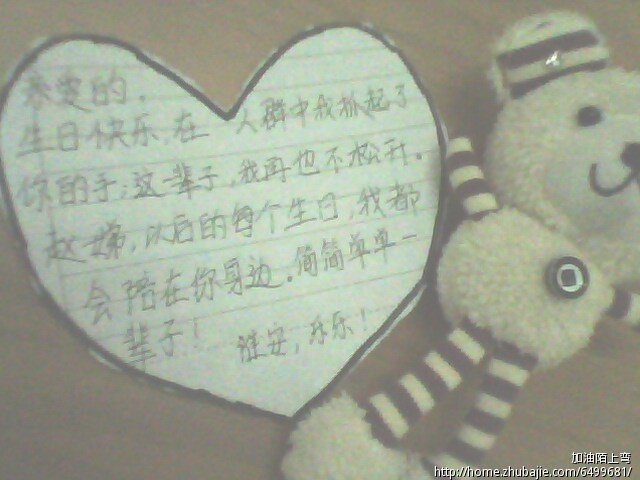 亲爱的，
生日快乐，在 人群中我抓起了
你的手；这一辈子，我再也不松开。
赵娣，以后的每个生日，我都
会陪在你身边。简简单单一
辈子！ 谁安，乐乐！
加油陌上弯
http://home.zhubajie.com/6499681/